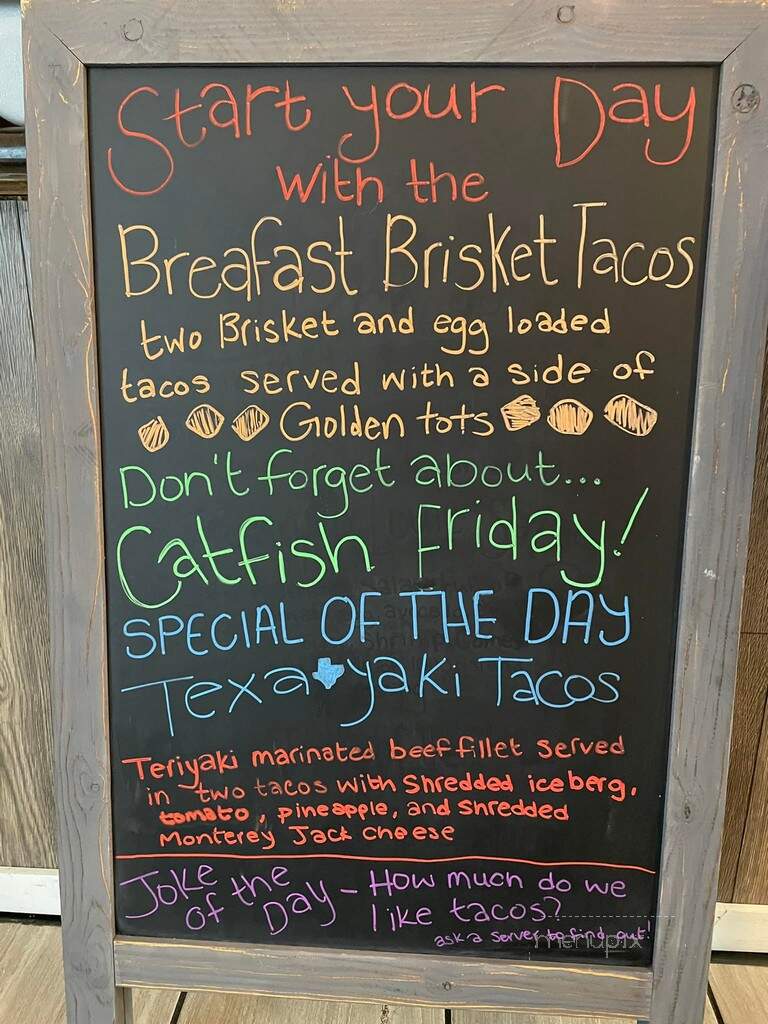 Start your Day
with the
Breafast Brisket Tacos
two Brisket and egg loaded
tacos served with a side of
Golden tots
Don't forget about...
Catfish Friday!
SPECIAL OF THE DAY
Texa yaki Tacos
Teriyaki marinated beef fillet served
in two tacos with Shredded iceberg,
tomato, pineapple, and Shredded
Monterey Jack cheese
Joke of the Day - How much do we
like tacos?
ask a server to find out!
menupix